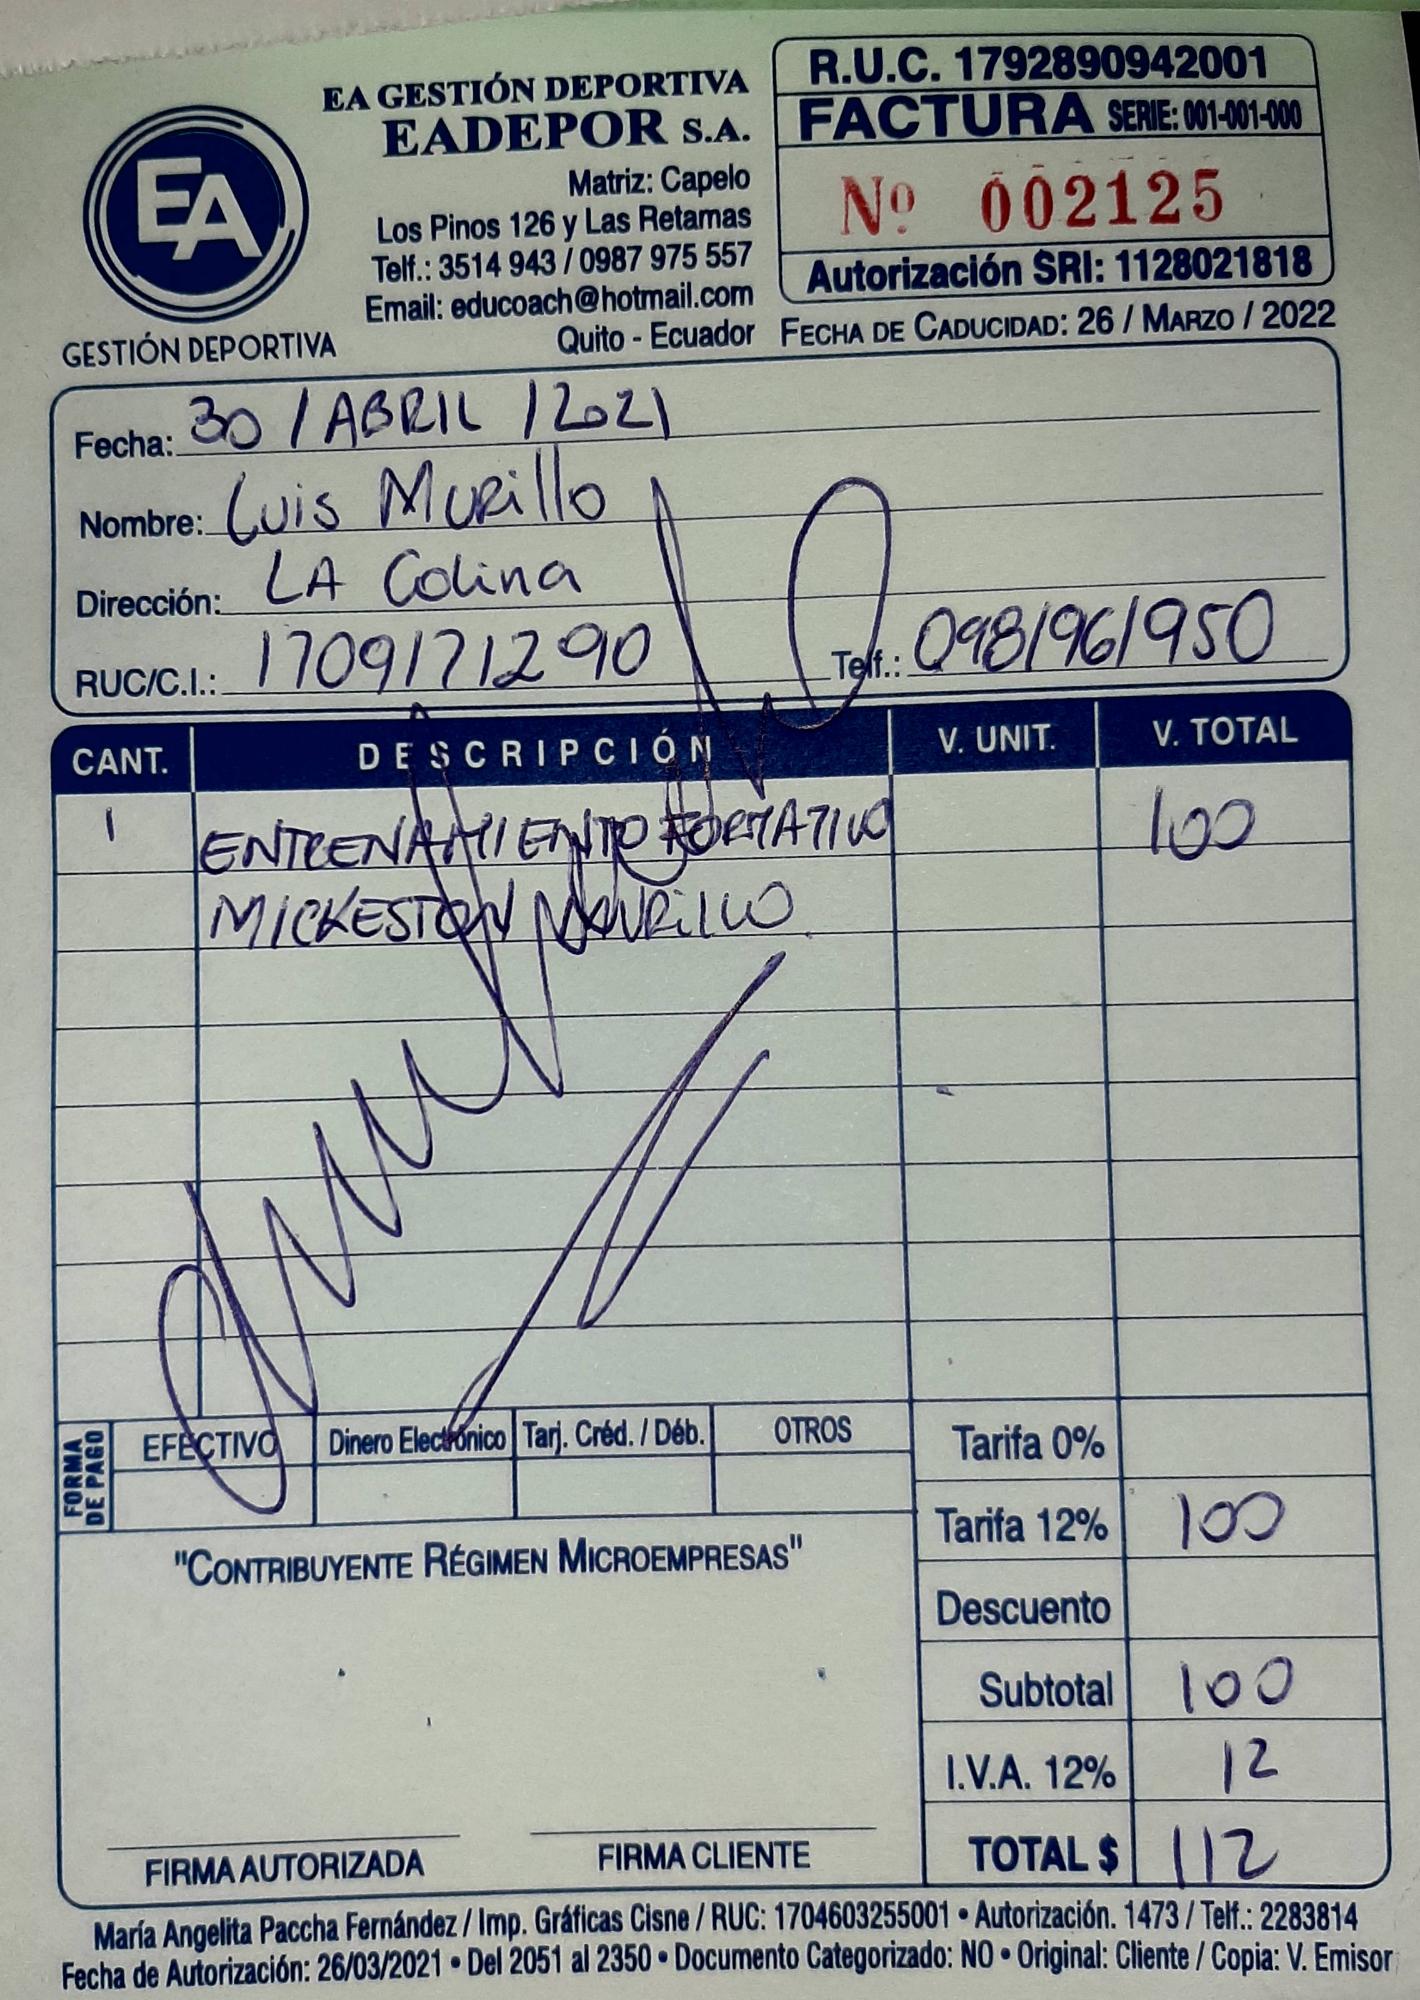 EA
GESTIÓN DEPORTIVA
EA GESTIÓN DEPORTIVA
EADEPOR S.A.
Matriz: Capelo
Los Pinos 126 y Las Retamas
Telf.: 3514 943 / 0987 975 557
Email: educoach@hotmail.com
Quito - Ecuador
R.U.C. 1792890942001
FACTURA SERIE: 001-001-000
Nº 002125
Autorización SRI: 1128021818
FECHA DE CADUCIDAD: 26 / MARZO / 2022
Fecha: 30 / ABRIL / 2021
Nombre: Luis Murillo
Dirección: LA Colina
RUC/C.I.: 1709171290 Telf.: 0981961950
CANT. DESCRIPCIÓN V. UNIT. V. TOTAL
1 ENTRENAMIENTO FORMATIVO 100
MICKESTON MURILLO
FORMA DE PAGO
EFECTIVO Dinero Electrónico Tarj. Créd. / Déb. OTROS
Tarifa 0%
Tarifa 12% 100
"CONTRIBUYENTE RÉGIMEN MICROEMPRESAS"
Descuento
Subtotal 100
I.V.A. 12% 12
TOTAL $ 112
FIRMA AUTORIZADA FIRMA CLIENTE
María Angelita Paccha Fernández / Imp. Gráficas Cisne / RUC: 1704603255001 • Autorización. 1473 / Telf.: 2283814
Fecha de Autorización: 26/03/2021 • Del 2051 al 2350 • Documento Categorizado: NO • Original: Cliente / Copia: V. Emisor